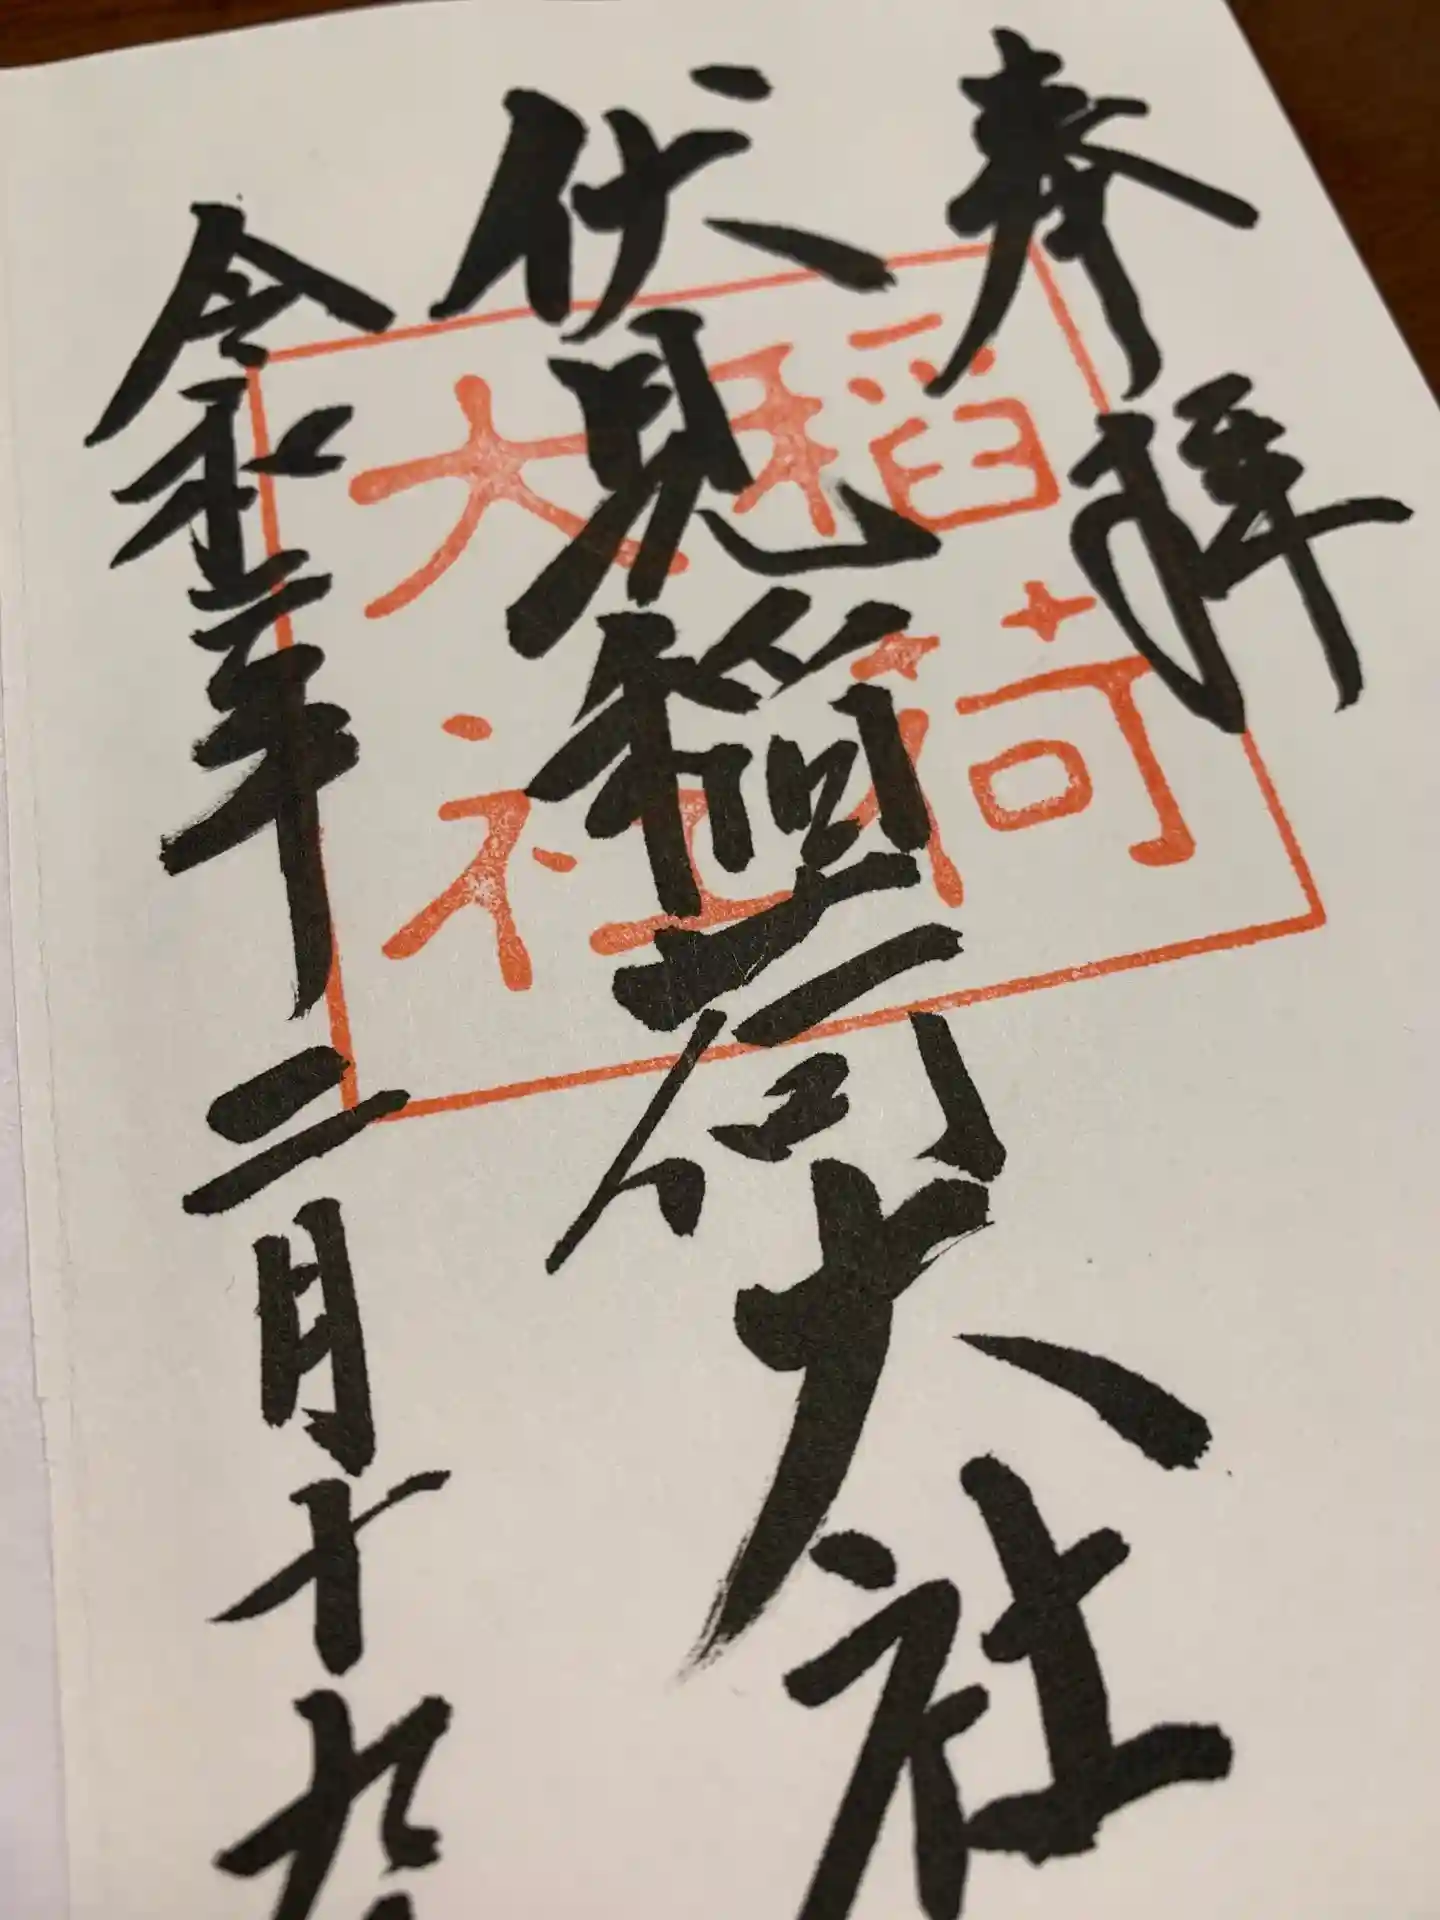 奉拝
伏見稲荷大社
令和年二月十九
稲荷
大社